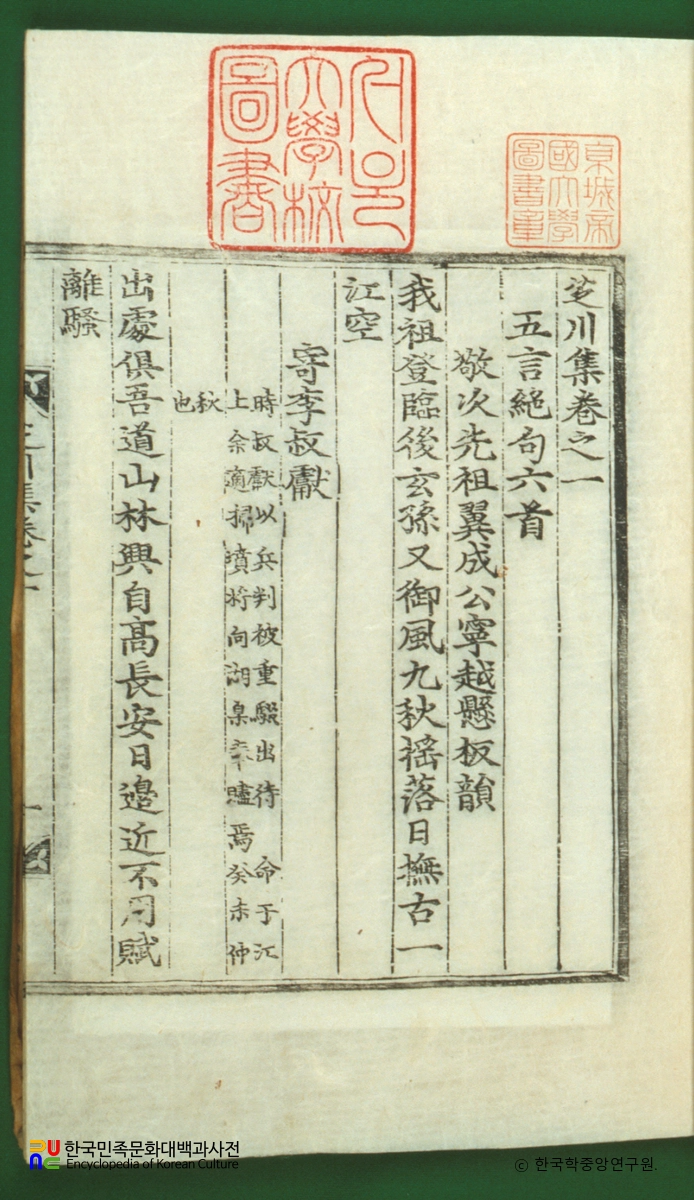 芝川集卷之一
五言絶句六首
敬次先祖翼成公寧越懸板韻
我祖登臨後玄孫又御風九秋搖落日撫古一
江空
寄李叔獻
時叔獻以兵判被重駁出待 命于江
上余適掃墳將向湖臬奉贐焉癸未仲
秋
也
出處俱吾道山林興自高長安日邊近不用賦
離騷
서울大學校圖書
京城帝國大學圖書章
한국민족문화대백과사전
Encyclopedia of Korean Culture
© 한국학중앙연구원.